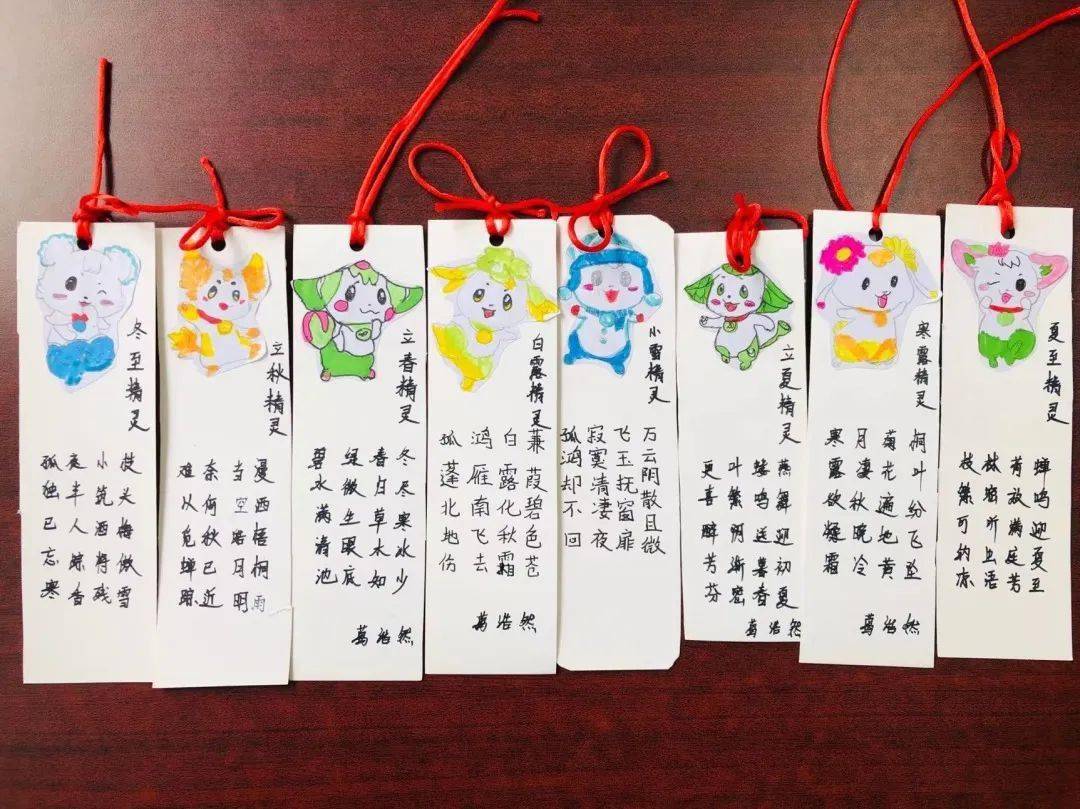 冬至精灵
枝头梅傲雪
小筑酒将残
夜半人踪香
孤独已忘寒
立秋精灵
漫西梧桐雨
当空皓月明
奈何秋已近
难从觅蝉踪
立春精灵
冬尽寒冰少
春归草木如
绿微生眼底
碧水满清池
葛浩然
白露精灵
蒹葭碧色苍
白露化秋霜
鸿雁南飞去
孤蓬北地伤
葛浩然
小雪精灵
万云阴散且微
飞玉抚窗扉
寂寞清凄夜
孤鸿却不回
立夏精灵
燕舞迎初夏
鸣送暮春
叶繁阴渐密
更喜醉芳芬
葛浩然
寒露精灵
桐叶纷飞坠
菊花遍地黄
月凄秋晚冷
寒露欲凝霜
葛浩然
夏至精灵
蝉鸣迎夏至
荷放满庭芳
林宿听虫语
枝繁可纳凉